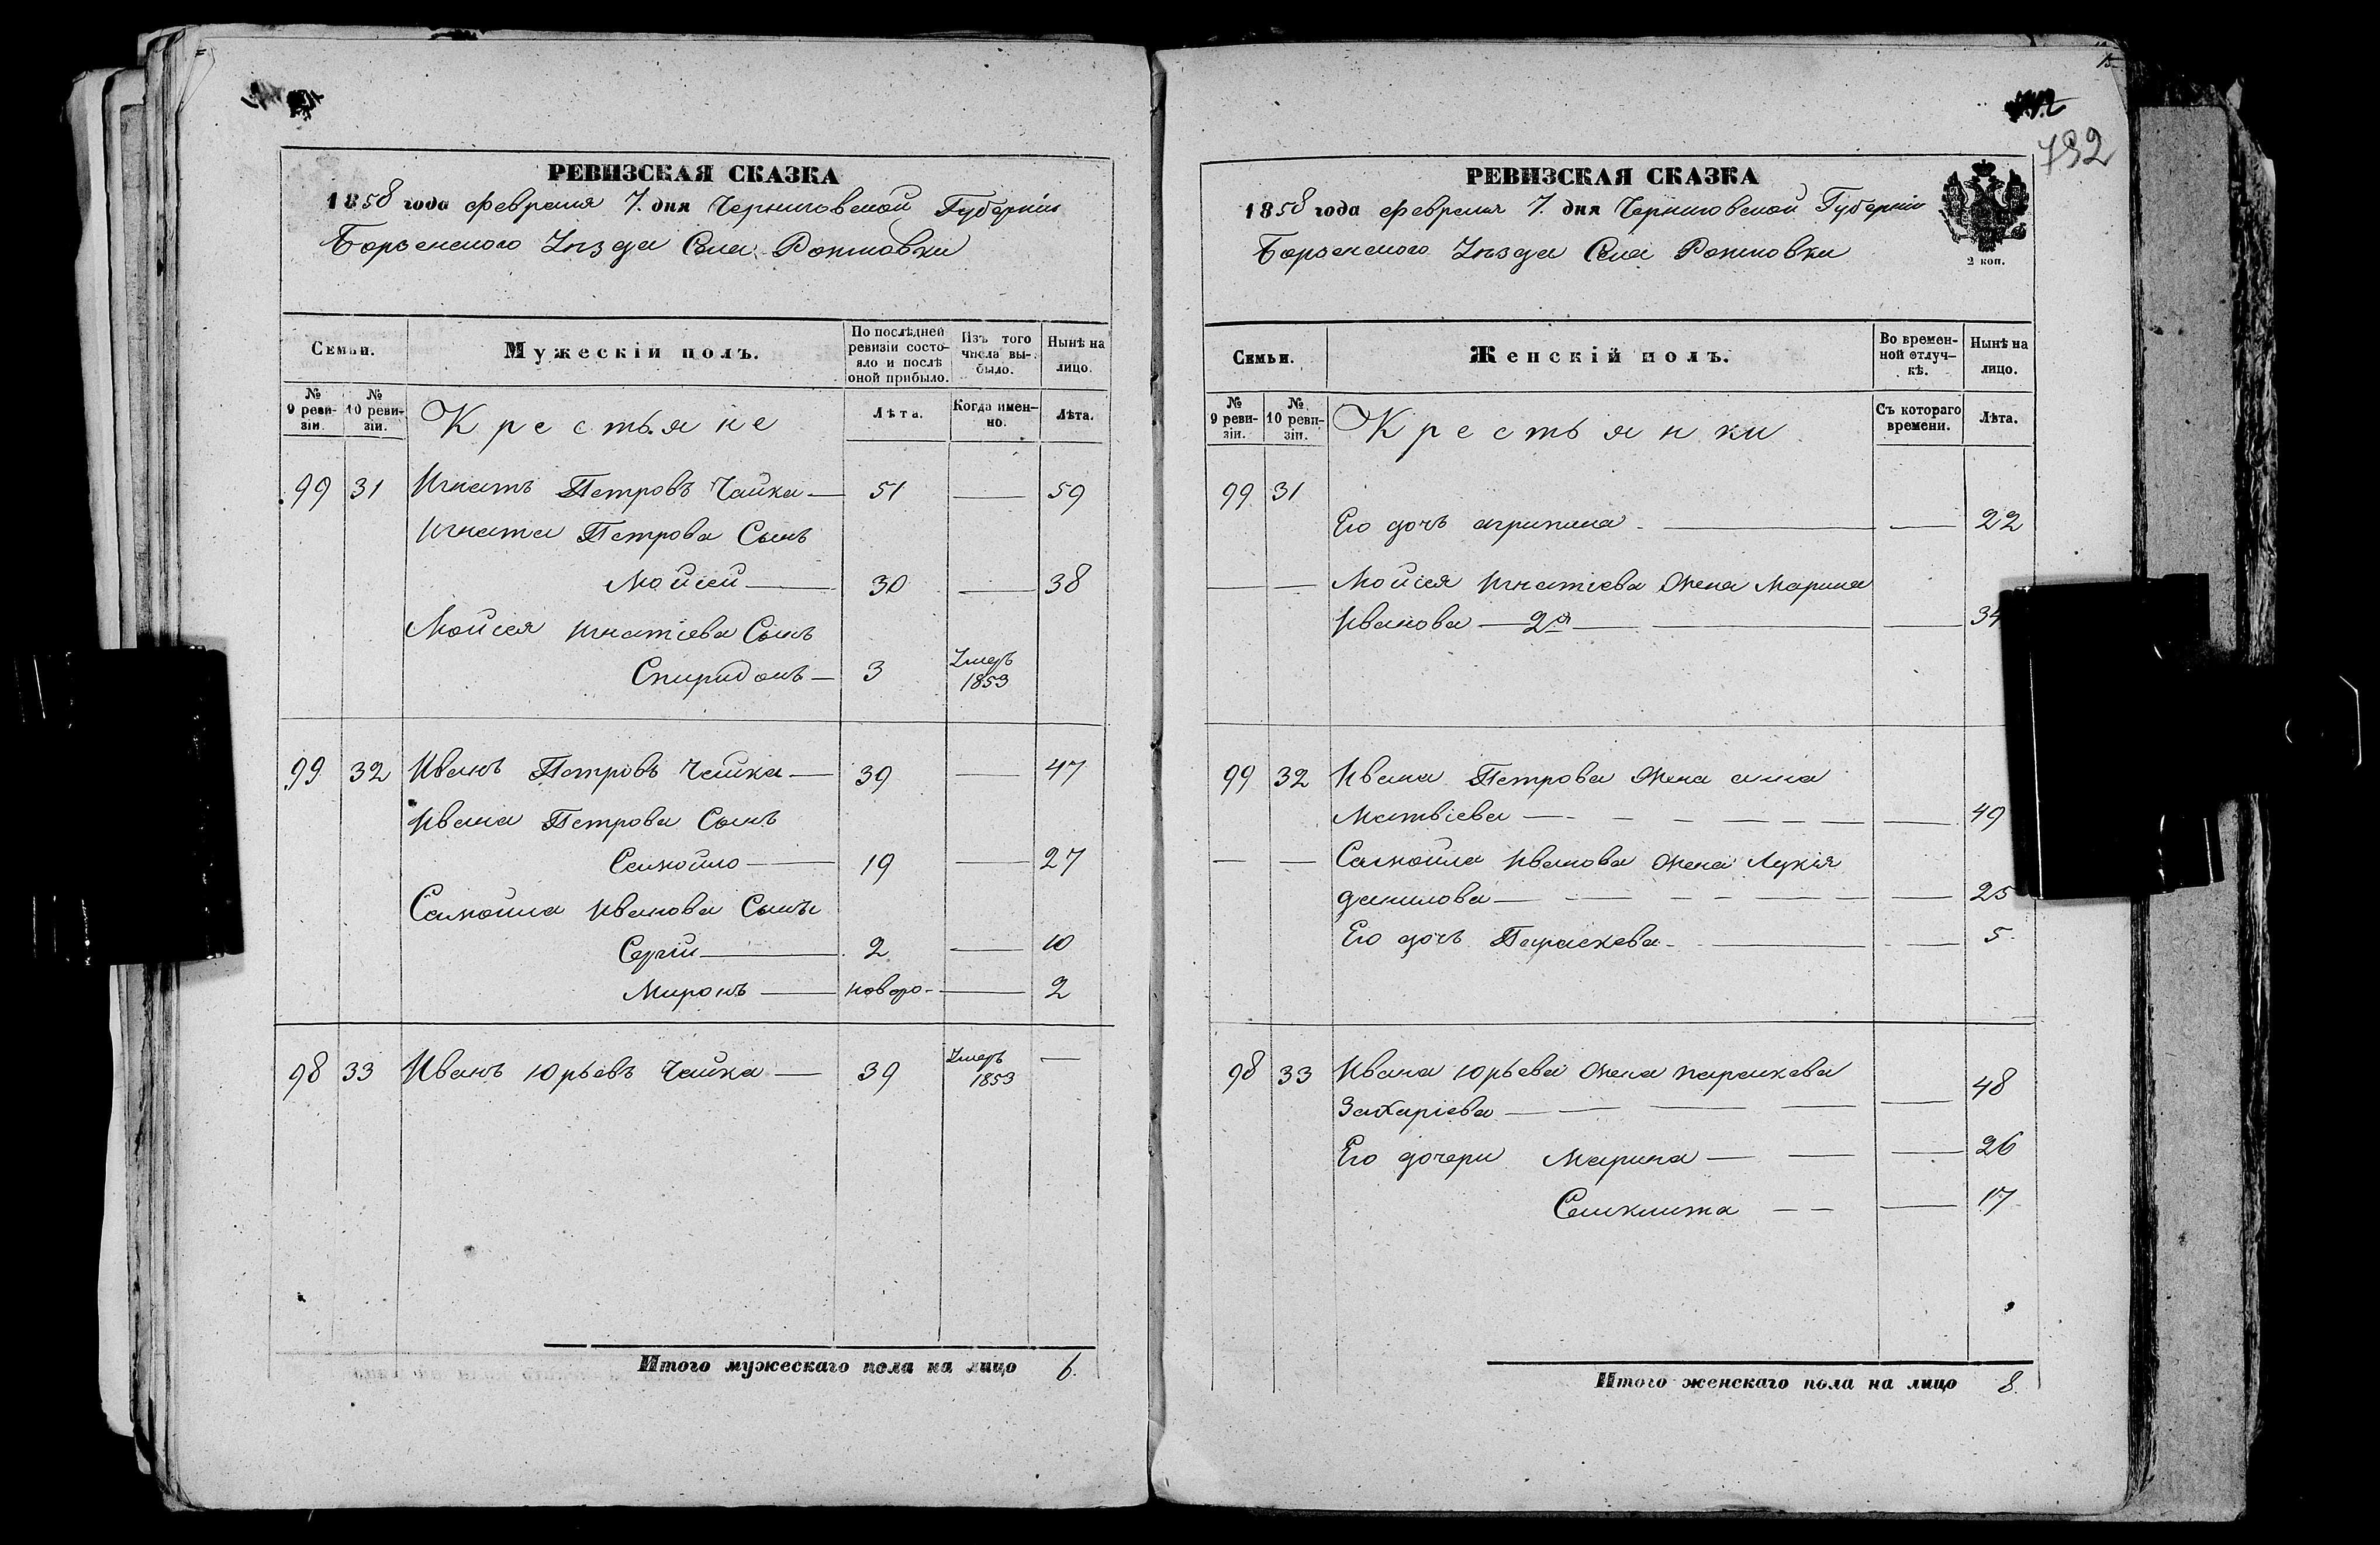 РЕВИЗСКАЯ СКАЗКА
1858 года февраля 7. дня Черниговской Губернии
Борзенского Уѣзда Села
Семьи.
Мужескій полъ.
По послѣдней ревизіи состояло и послѣ оной прибыло.
Изъ того числа выбыло.
Нынѣ на лицо.
№ 9 ревизіи.
№ 10 ревизіи.
Крестьяне
Лѣта.
Когда именно.
Лѣта.
99 31 Игнатъ Петровъ Чайка — 51 — 59
Игната Петрова Сынъ
Мойсей — 30 — 38
Мойсея Игнатіева Сынъ
Спиридонъ — 3 Умеръ 1853
99 32 Иванъ Петровъ Чайка — 39 — 47
Ивана Петрова Сынъ
Самойло — 19 — 27
Самойла Иванова Сыны
Сергій — 2 — 10
Миронъ — новоро- — 2
98 33 Иванъ Юрьевъ Чайка — 39 Умеръ 1853 —
Итого мужескаго пола на лицо 6.
15
142
732
РЕВИЗСКАЯ СКАЗКА
1858 года февраля 7. дня Черниговской Губерніи
Борзенского Уѣзда Села
2 коп.
Семьи.
Женскій полъ.
Во временной отлучкѣ.
Нынѣ на лицо.
№ 9 ревизіи.
№ 10 ревизіи.
Крестьянки
Съ котораго времени.
Лѣта.
99 31
Его дочь агрипина — — 22
— — Мойсея Игнатіева жена Марина
Иванова — 2я — — 34
99 32 Ивана Петрова жена анна
Матвіева — — 49
— — Самойла Иванова жена Лукія
данилова — — 25
Его дочь Параскева — — 5.
98 33 Ивана Юрьева жена параскева
Захаріева — — 48
Его дочери Марина — — 26
Синклита — — 17
Итого женскаго пола на лицо 8.